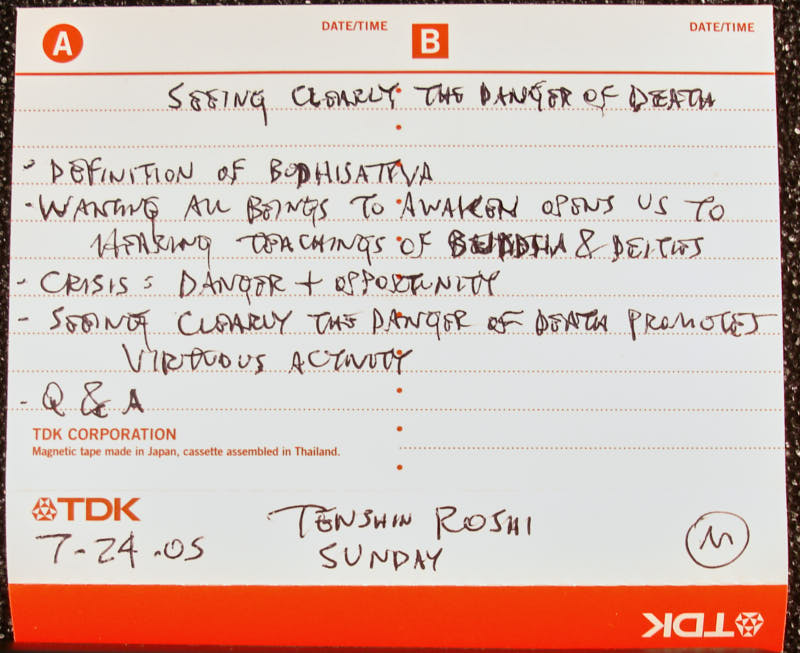 A DATE/TIME B DATE/TIME
SEEING CLEARLY THE DANGER OF DEATH
- DEFINITION OF BODHISATTVA
- WANTING ALL BEINGS TO AWAKEN OPENS US TO
HEARING TEACHINGS OF BUDDHA & DEITIES
- CRISIS = DANGER + OPPORTUNITY
- SEEING CLEARLY THE DANGER OF DEATH PROMOTES
VIRTUOUS ACTIVITY
- Q & A
TDK CORPORATION
Magnetic tape made in Japan, cassette assembled in Thailand.
TDK
TENSHIN ROSHI
7-24-05
SUNDAY
M
TDK